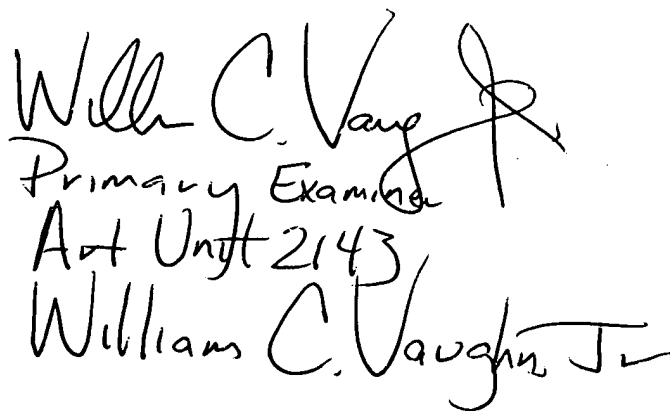 Willi C. Vaug Jr.
Primary Examiner
Art Unit 2143
William C. Vaughn, Jr